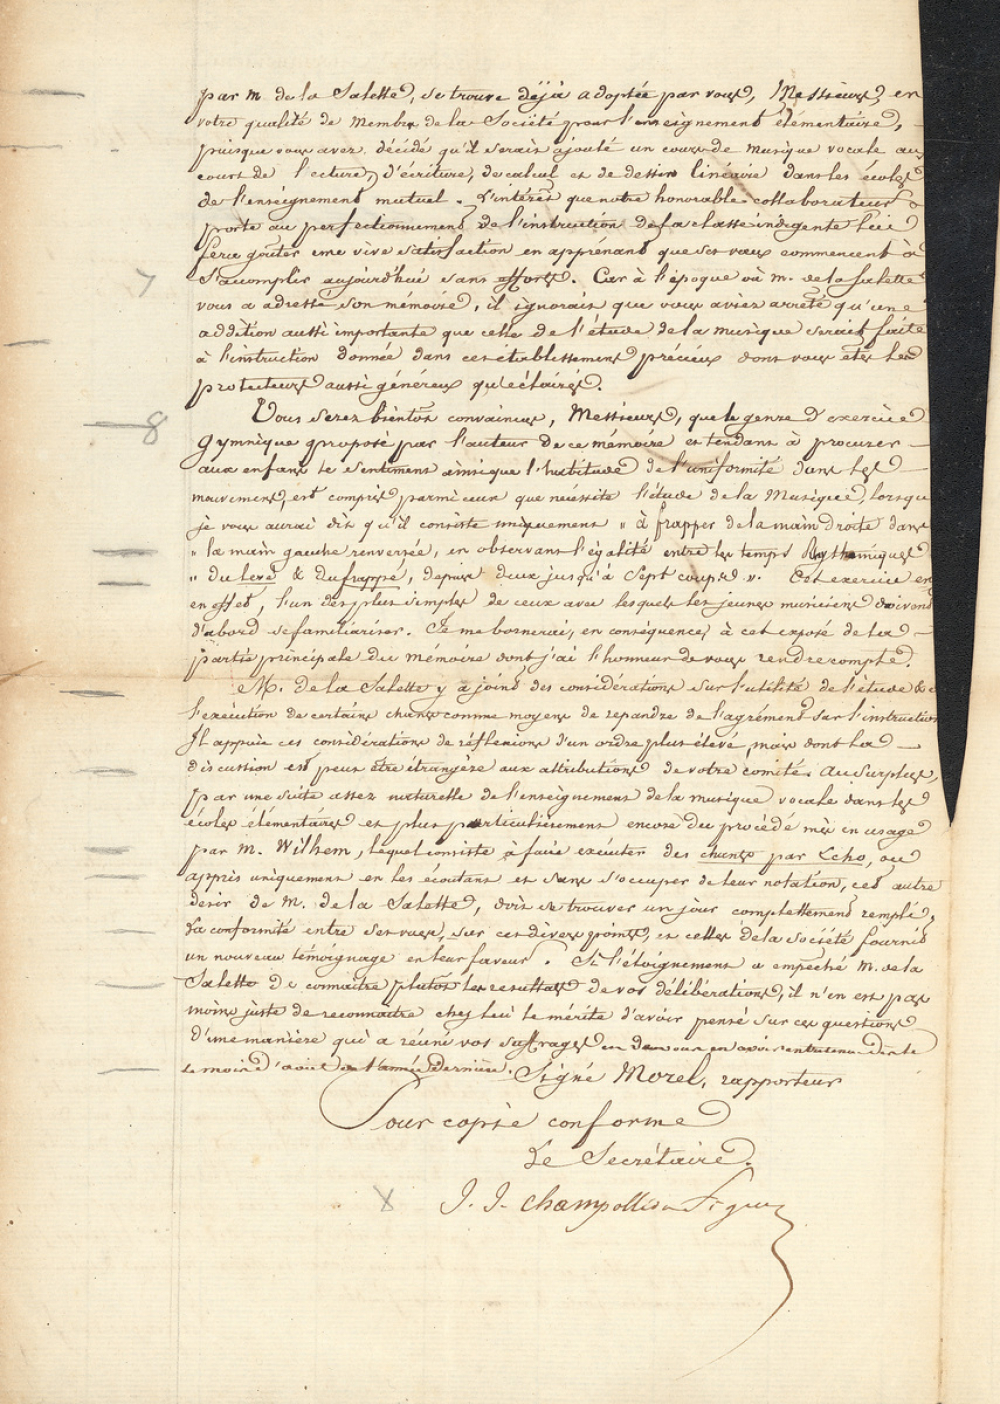 par M. de la Salette, se trouve déjà adoptée par vous, Messieurs, en
votre qualité de Membre de la Société pour l'enseignement élémentaire,
puisque vous avez décidé qu'il serait ajouté un cours de musique vocale aux
cours de lecture, d'écriture, de calcul et de dessin linéaire dans les écoles
de l'enseignement mutuel. L'intérêt que notre honorable collaborateur
porte au perfectionnement de l'instruction de la classe indigente lui
fera goûter une vive satisfaction en apprenant que ses vœux commencent à
7
s'accomplir aujourd'hui sans efforts. Car à l'époque où M. de la Salette
vous a adressé son mémoire, il ignorait que vous aviez arrêté qu'une
addition aussi importante que celle de l'étude de la musique serait faite
à l'instruction donnée dans ces établissements précieux dont vous êtes les
protecteurs aussi généreux qu'éclairés.
8
Vous serez bientôt convaincus, Messieurs, que le genre d'exercice
gymnique proposé par l'auteur de ce mémoire et tendant à procurer
aux enfans le sentiment ainsi que l'habitude de l'uniformité dans les
mouvemens, est compris parmi ceux que nécessite l'étude de la Musique, lorsque
je vous aurai dit qu'il consiste uniquement « à frapper de la main droite dans
« la main gauche renversée, en observant l'égalité entre les temps Rythmiques
« du levé & du frappé, depuis deux jusqu'à sept coups ». Cet exercice est
en effet, l'un des plus simples de ceux avec lesquels les jeunes musiciens doivent
d'abord se familiariser. Je me bornerai, en conséquence, à cet exposé de la
partie principale du mémoire dont j'ai l'honneur de vous rendre compte.
M. de la Salette y a joint des considérations sur l'utilité de l'étude & de
l'exécution de certains chants comme moyens de repandre de l'agrément sur l'instruction
Il appuie ces considérations de réflexions d'un ordre plus élevé, mais dont la
discussion est peut être étrangère aux attributions de votre comité. Au surplus,
par une suite assez naturelle de l'enseignement de la musique vocale dans les
écoles élémentaires et plus particulièrement encore du procédé mis en usage
par M. Wilhem, lequel consiste à faire exécuter des chants par Echo, ou
appris uniquement en les écoutant et sans s'occuper de leur notation, cet autre
désir de M. de la Salette, doit se trouver un jour complettement rempli.
La conformité entre ses vues, sur ces divers points, et celles de la société fournit
un nouveau témoignage en leur faveur. Si l'éloignement a empêché M. de la
Salette de connaître plutôt les resultats de vos délibérations, il n'en est pas
moins juste de reconnaître chez lui le mérite d'avoir pensé sur ces questions
d'une manière qui a réuni vos suffrages
le mois d'août de l'année dernière. Signé Morel, rapporteur
Pour copie conforme
Le Secrétaire.
J. J. Champollion Figeac